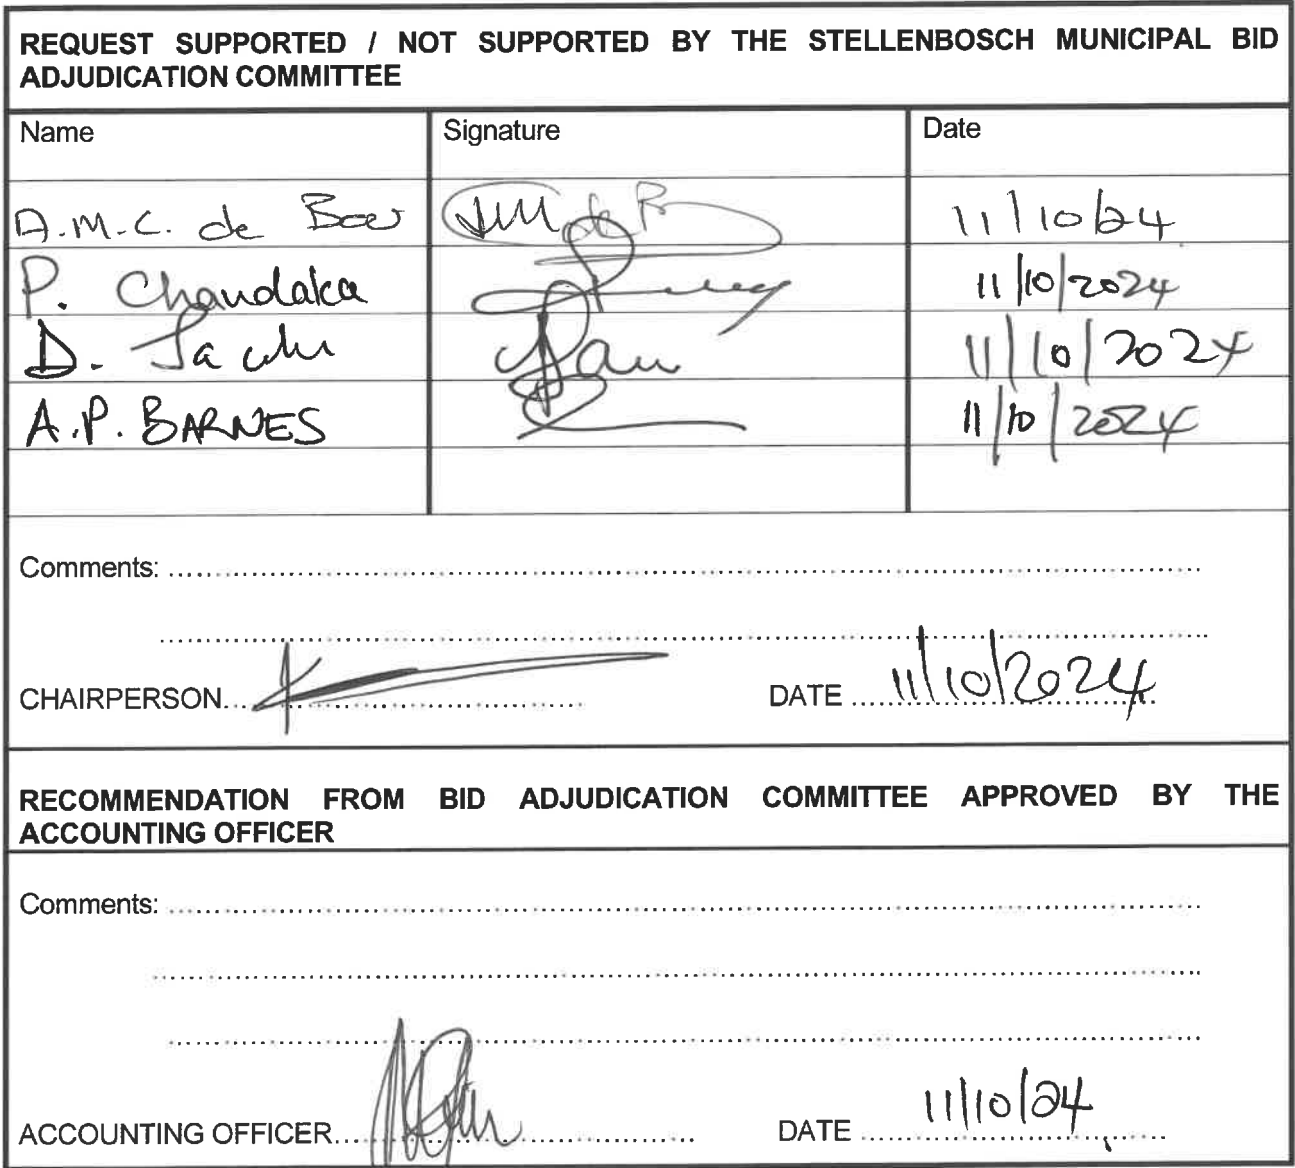 REQUEST SUPPORTED / NOT SUPPORTED BY THE STELLENBOSCH MUNICIPAL BID
ADJUDICATION COMMITTEE
Name Signature Date
A.M.C. de Boer 11/10/24
P. Chandaka 11/10/2024
D. 11/10/2024
A.P. BARNES 11/10/2024
Comments:
CHAIRPERSON DATE 11/10/2024
RECOMMENDATION FROM BID ADJUDICATION COMMITTEE APPROVED BY THE
ACCOUNTING OFFICER
Comments:
ACCOUNTING OFFICER DATE 11/10/24